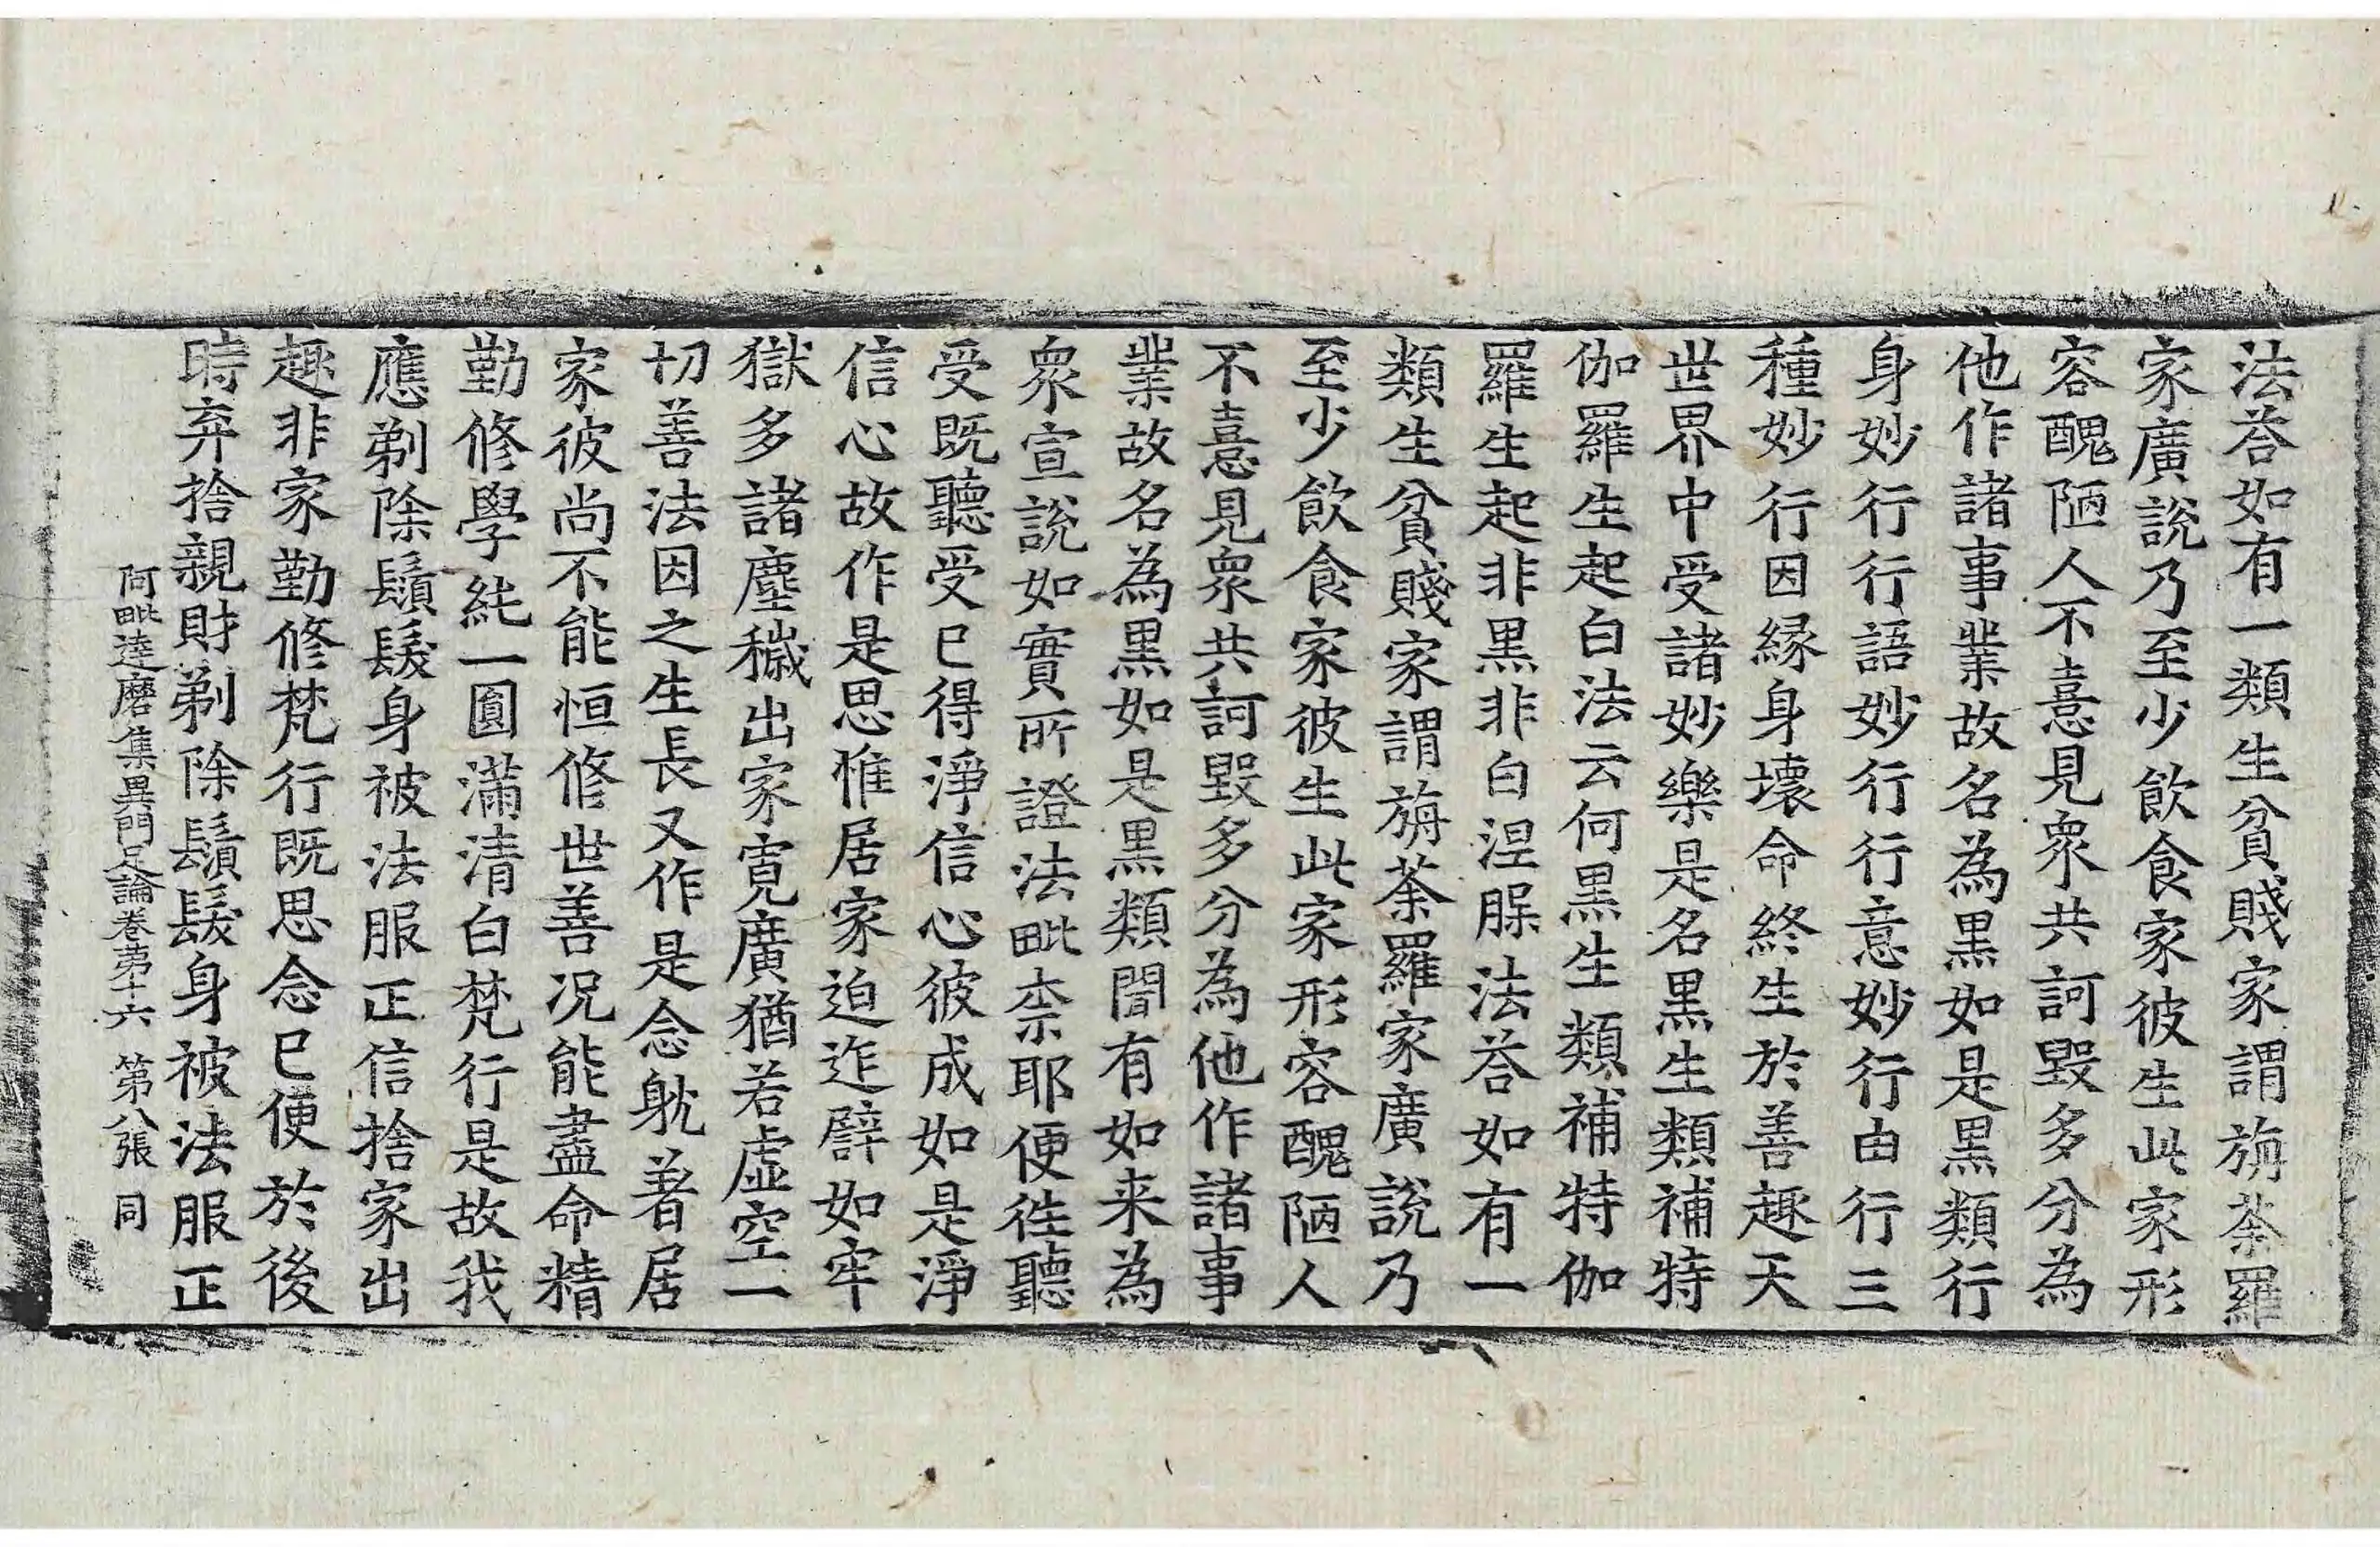 法荅如有一類生貧賤家謂旃荼羅
家廣說乃至少飲食家彼生此家形
容醜陋人不憙見衆共訶毀多分為
他作諸事業故名為黒如是黒類行
身妙行行語妙行行意妙行由行三
種妙行因縁身壞命終生於善趣天
世界中受諸妙樂是名黒生類補特
伽羅生起白法云何黒生類補特伽
羅生起非黒非白涅槃法荅如有一
類生貧賤家謂旃荼羅家廣說乃
至少飲食家彼生此家形容醜陋人
不憙見衆共訶毀多分為他作諸事
業故名為黒如是黒類聞有如来為
衆宣說如實所證法毗奈耶便往聽
受既聽受已得淨信心彼成如是淨
信心故作是思惟居家迫迮譬如牢
獄多諸塵穢出家寬廣猶若虛空一
切善法因之生長又作是念躭著居
家彼尚不能恒修世善况能盡命精
勤修學純一圓滿清白梵行是故我
應剃除鬚髮身被法服正信捨家出
趣非家勤修梵行既思念已便於後
時弃捨親財剃除鬚髮身被法服正
阿毗達磨集異門足論卷苐十六 第八張 同